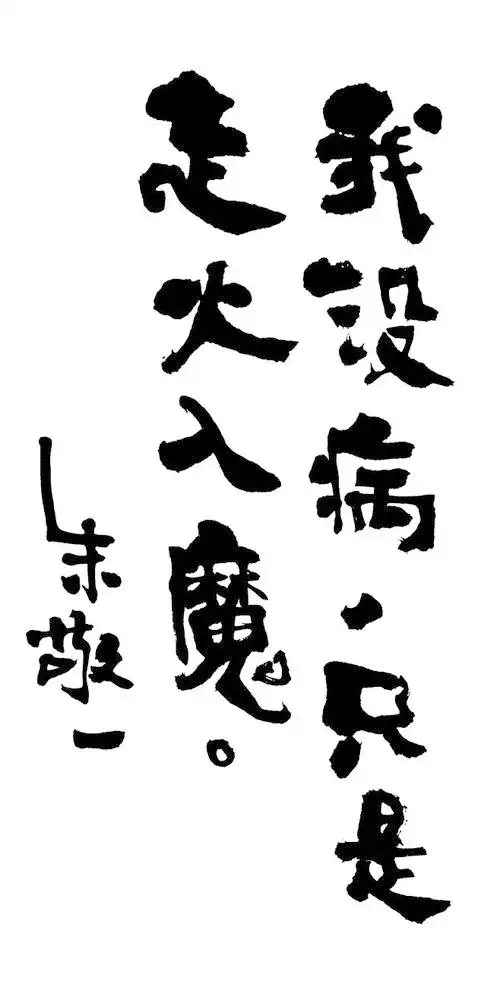 我没病，只是
走火入魔。
朱敬一